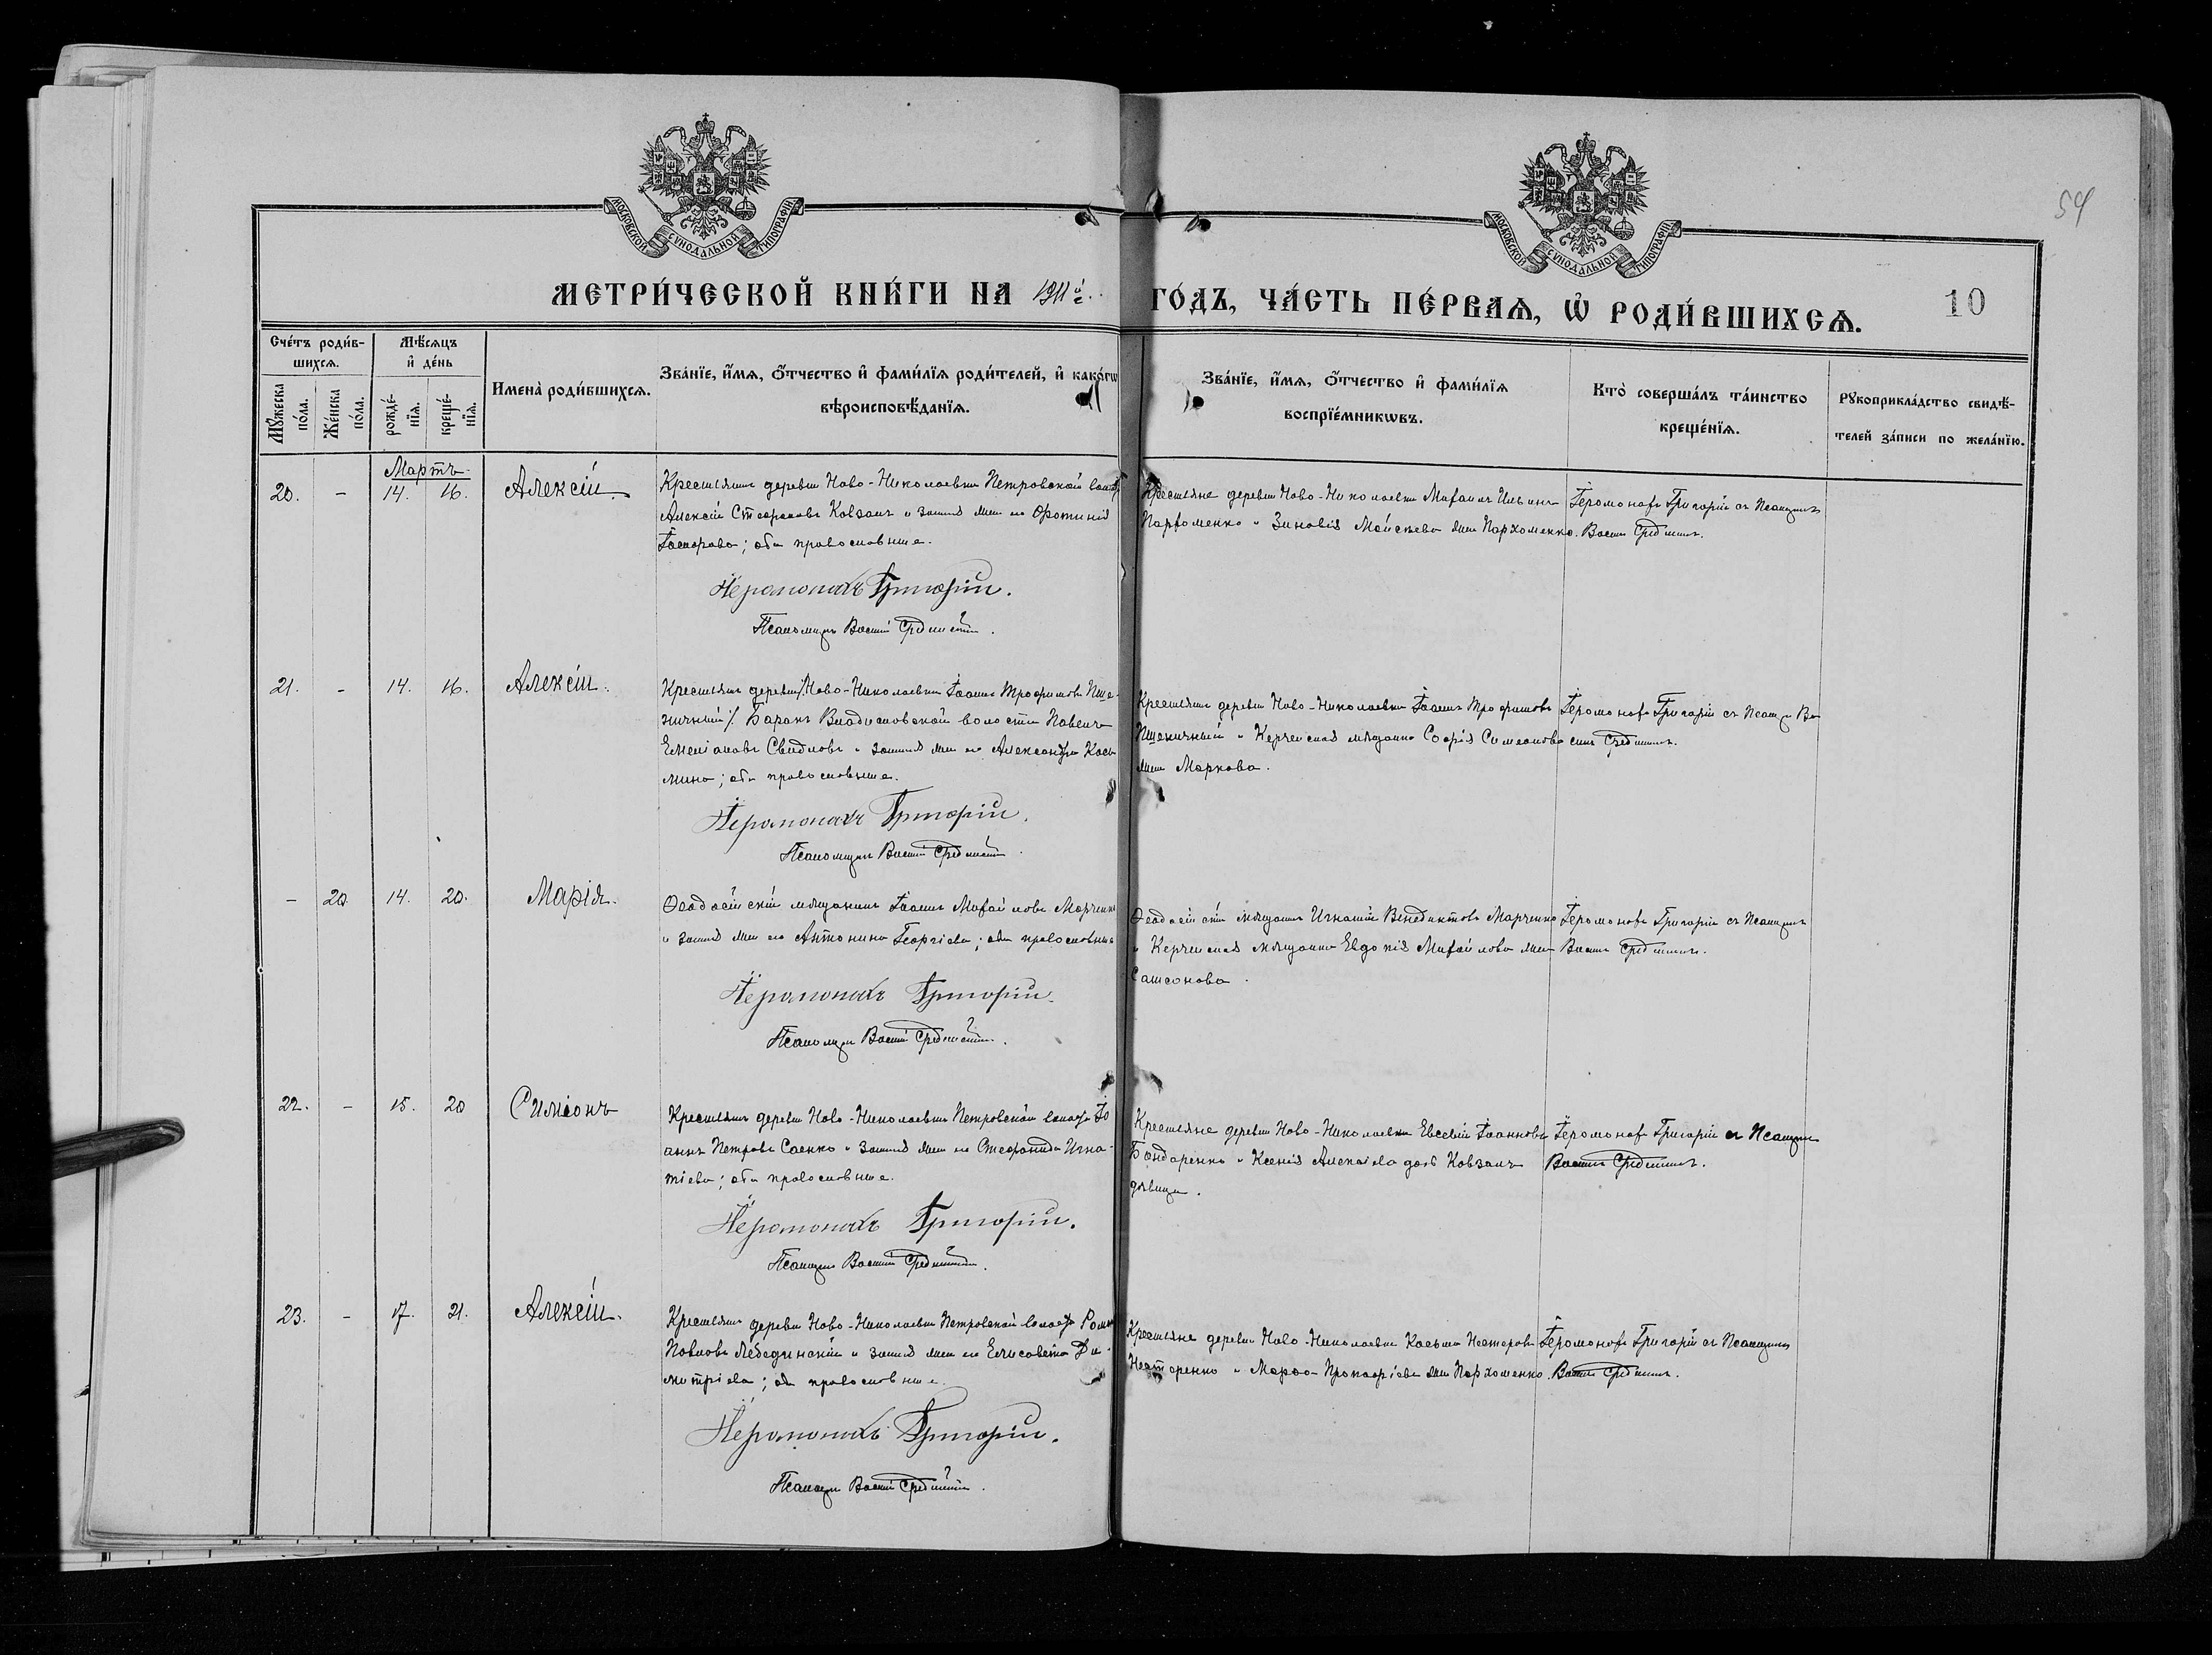 МОСКОВСКОЙ СѴНОДАЛЬНОЙ ТИПОГРАФІИ
МОСКОВСКОЙ СѴНОДАЛЬНОЙ ТИПОГРАФІИ
54
МЕТРИ́ЧЕСКОЙ КНИ́ГИ НА 1911й
ГО́ДЪ, ЧА́СТЬ ПЕ́РВАѦ, Ѽ РОДИ́ВШИХСѦ.
10
Сче́тъ роди́в-
шихсѧ.
Мѣ́сѧцъ
и҆ де́нь
Мꙋ́жеска
по́ла.
Же́нска
по́ла.
рожде́-
нїѧ.
креще́-
нїѧ.
Имена̀ роди́вшихсѧ.
Зва́нїе, и҆́мѧ, ѻ҆́тчество и҆ фами́лїѧ роди́телей, и҆ како́гѡ
вѣроисповѣ́данїѧ.
Зва́нїе, и҆́мѧ, ѻ҆́тчество и҆ фами́лїѧ
воспрїе́мникѡвъ.
Кто̀ соверша́лъ та́инство
креще́нїѧ.
Рꙋкоприкла́дство свидѣ́-
телей за́писи по жела́нїю.
Мартъ
20. - 14. 16. Алексій
Крестьянинъ деревни Ново-Николаевки Петровской
Алексій Стефановъ Ковзанъ и законная жена его Фотинія
; оба православные.
Іеромонахъ Григорій.
Псаломщикъ Василій
Крестьяне деревни Ново-Николаевки Михаилъ Ильинъ
Пархоменко и Зиновія Моисѣева жена Пархоменко.
Іеромонахъ Григорій съ Псаломщик.
21. - 14. 16. Алексій.
Крестьянинъ деревни Ново-Николаевки Іоаннъ Трофимовъ Пше-
ничный/ Баранъ Владиславской волости Павелъ
Емеліановъ и законная жена его Александра Косъ
мина; оба православные.
Іеромонахъ Григорій.
Псаломщикъ Василій
Крестьянинъ деревни Ново-Николаевки Іоаннъ Трофимовъ
Пшеничный и Керченская мѣщанка Софія Симеонова
жена Маркова.
Іеромонахъ Григорій съ Псаломщ. Ва
- 20 14. 20. Марія.
Ѳеодосійскій мѣщанинъ Іоаннъ Михайловъ Марченко
и законная жена его Антонина Георгіева; оба православные
Іеромонахъ Григорій.
Псаломщикъ Василій
Ѳеодосійскій мѣщанинъ Игнатій Венедиктовъ Марченко
и Керченская мѣщанка Евдокія Михайлова жена
Самсонова.
Іеромонахъ Григорій съ Псаломщик.
22. - 15. 20 Симеонъ
Крестьянинъ деревни Ново-Николаевки Петровской волости Іо
аннъ Петровъ Саенко и законная жена его Стефанида Игна-
тіева; оба православные.
Іеромонахъ Григорій.
Псаломщикъ Василій
Крестьяне деревни Ново-Николаевки Евсевій Іоанновъ
Бондаренко и Ксенія Алексіева дочь Ковзанъ
дѣвица.
Іеромонахъ Григорій съ Псаломщик.
23. - 17. 21. Алексій.
Крестьянинъ деревни Ново-Николаевки Петровской волости Романъ
Павловъ Лебединскій и законная жена его Елисавета Ди-
митріева; оба православные.
Іеромонахъ Григорій.
Псаломщикъ Василій
Крестьяне деревни Ново-Николаевки Косьма Несторовъ
Нестеренко и Марѳа Прокофіева жена Пархоменко.
Іеромонахъ Григорій съ Псаломщик.